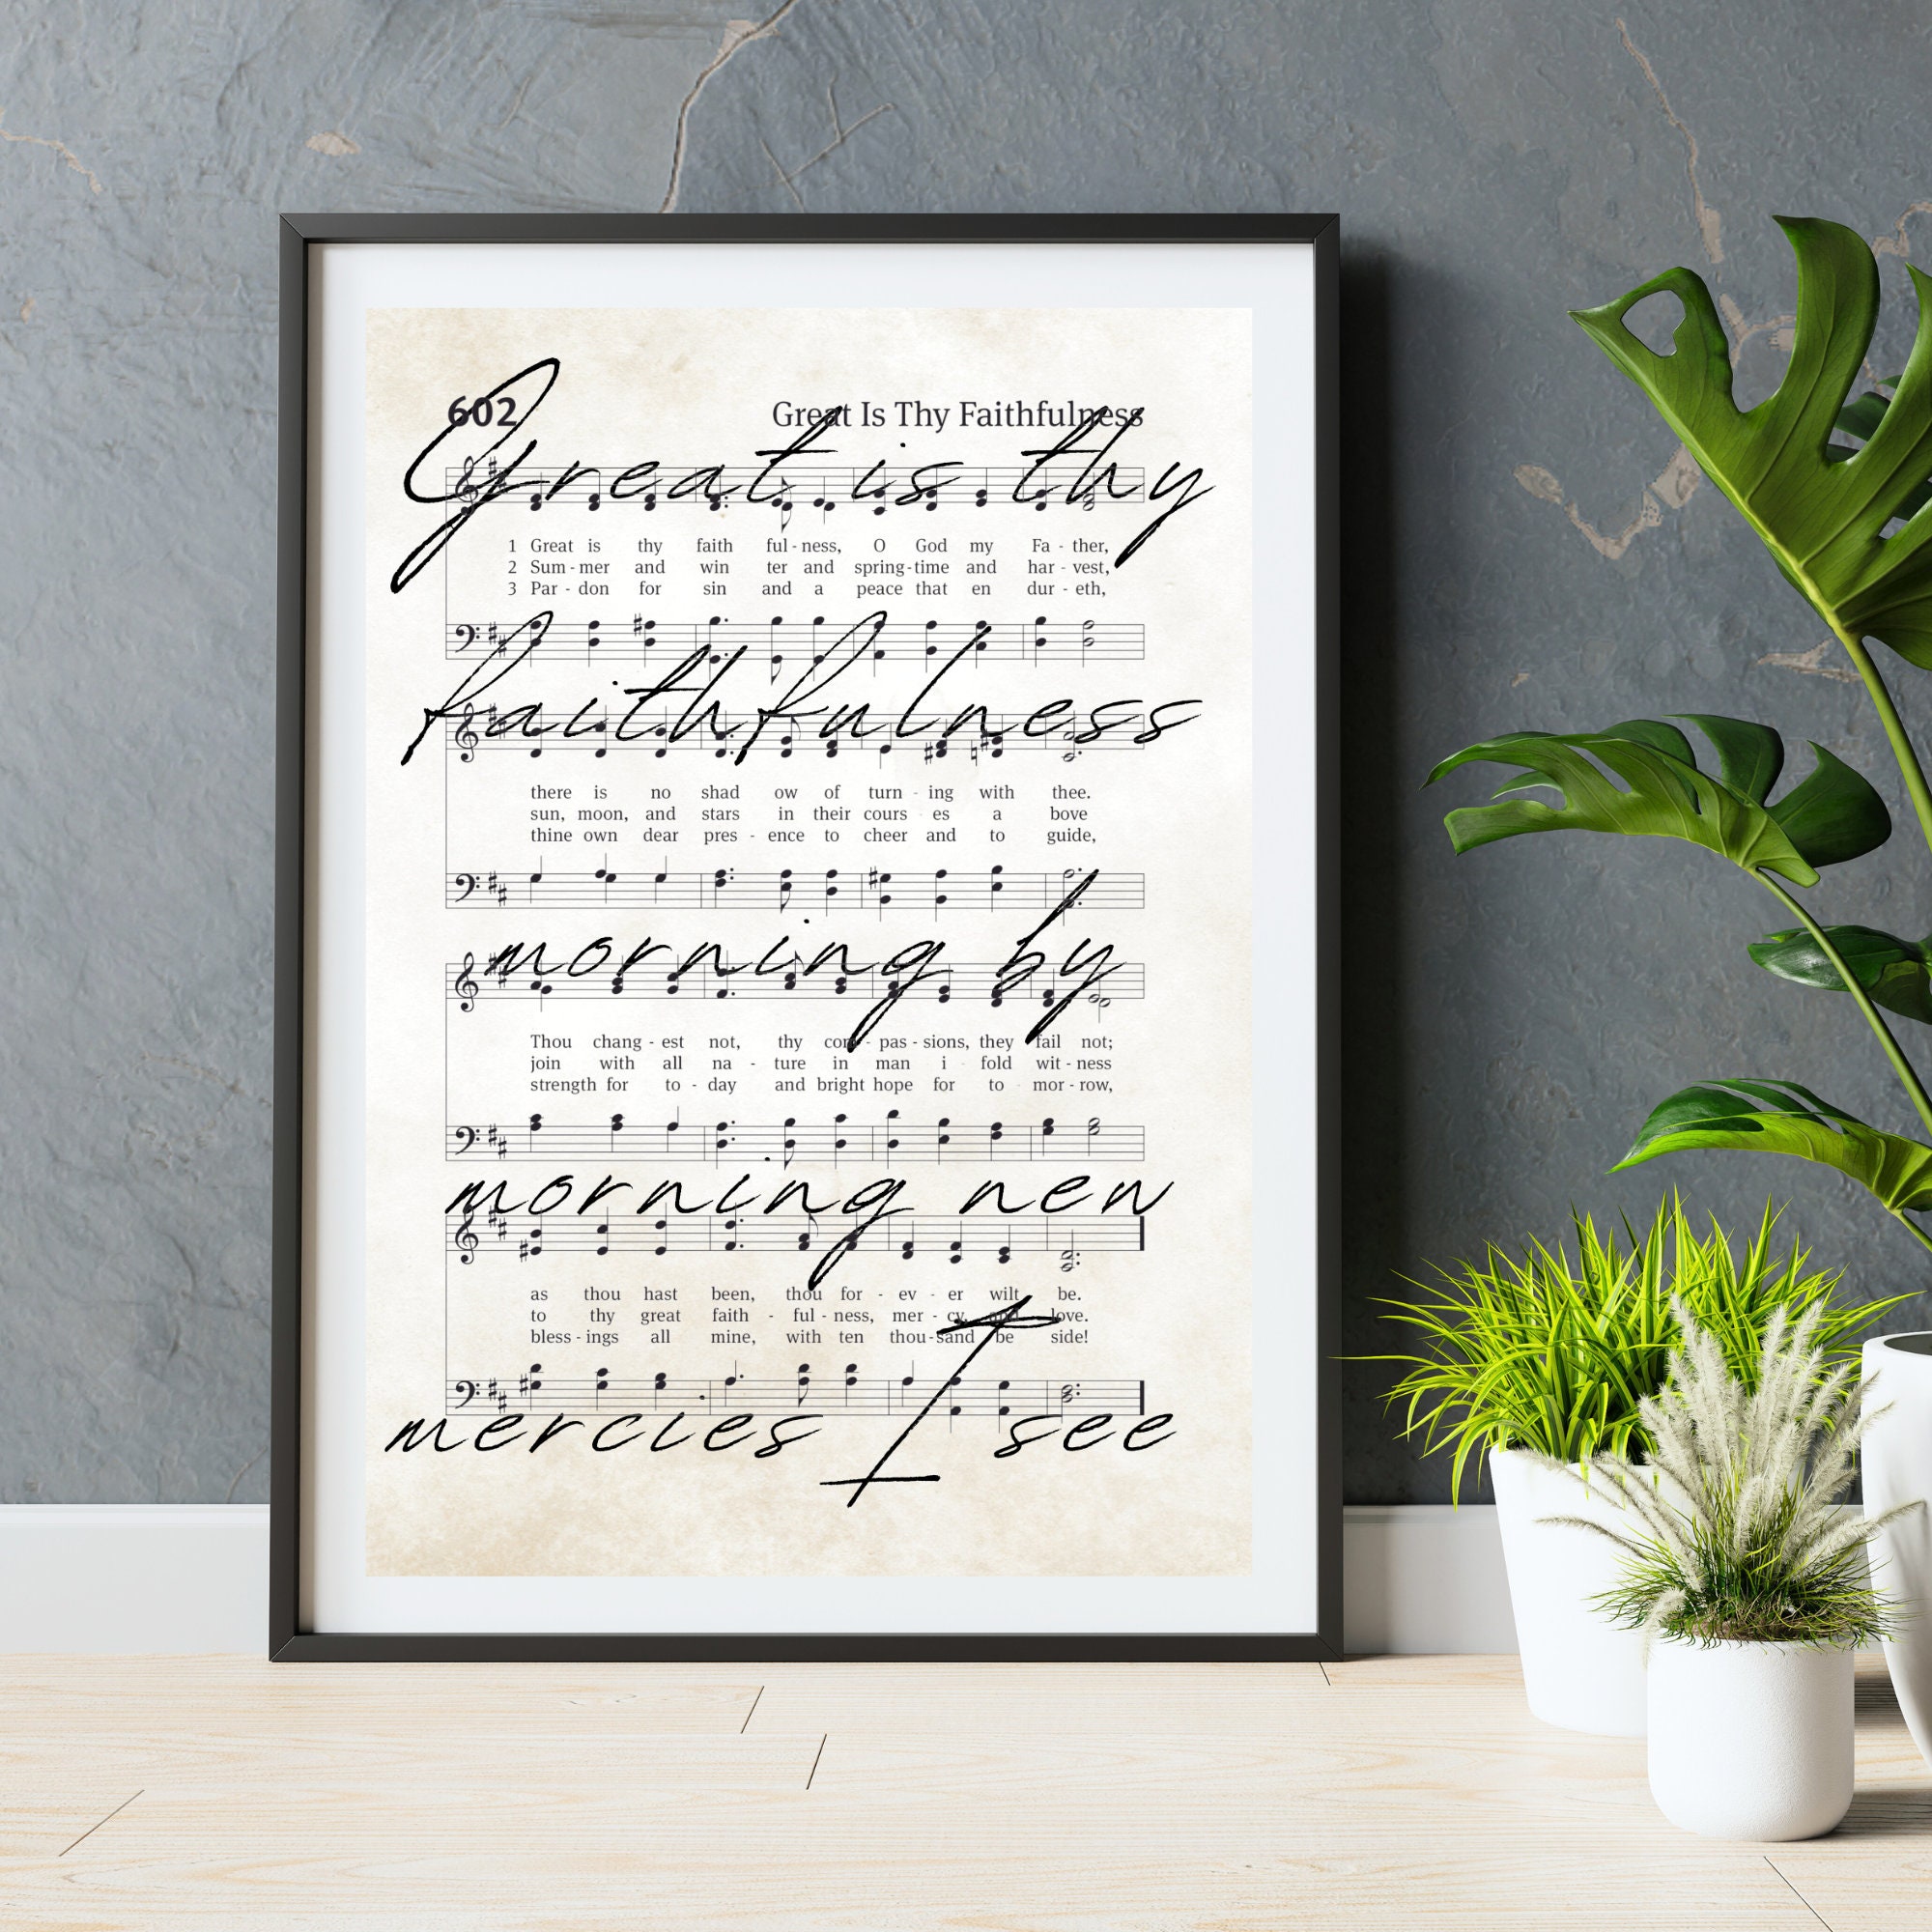 602 Great Is Thy Faithfulness
Great is thy
1 Great is thy faith ful - ness, O God my Fa - ther,
2 Sum - mer and win ter and spring - time and har - vest,
3 Par - don for sin and a peace that en dur - eth,
faithfulness
there is no shad ow of turn - ing with thee.
sun, moon, and stars in their cours es a bove
thine own dear pres - ence to cheer and to guide,
morning by
Thou chang - est not, thy com - pas - sions, they fail not;
join with all na - ture in man i fold wit - ness
strength for to - day and bright hope for to mor - row,
morning new
as thou hast been, thou for - ev - er wilt be.
to thy great faith - ful - ness, mer - cy, and love.
bless - ings all mine, with ten thou - sand be side!
mercies I see